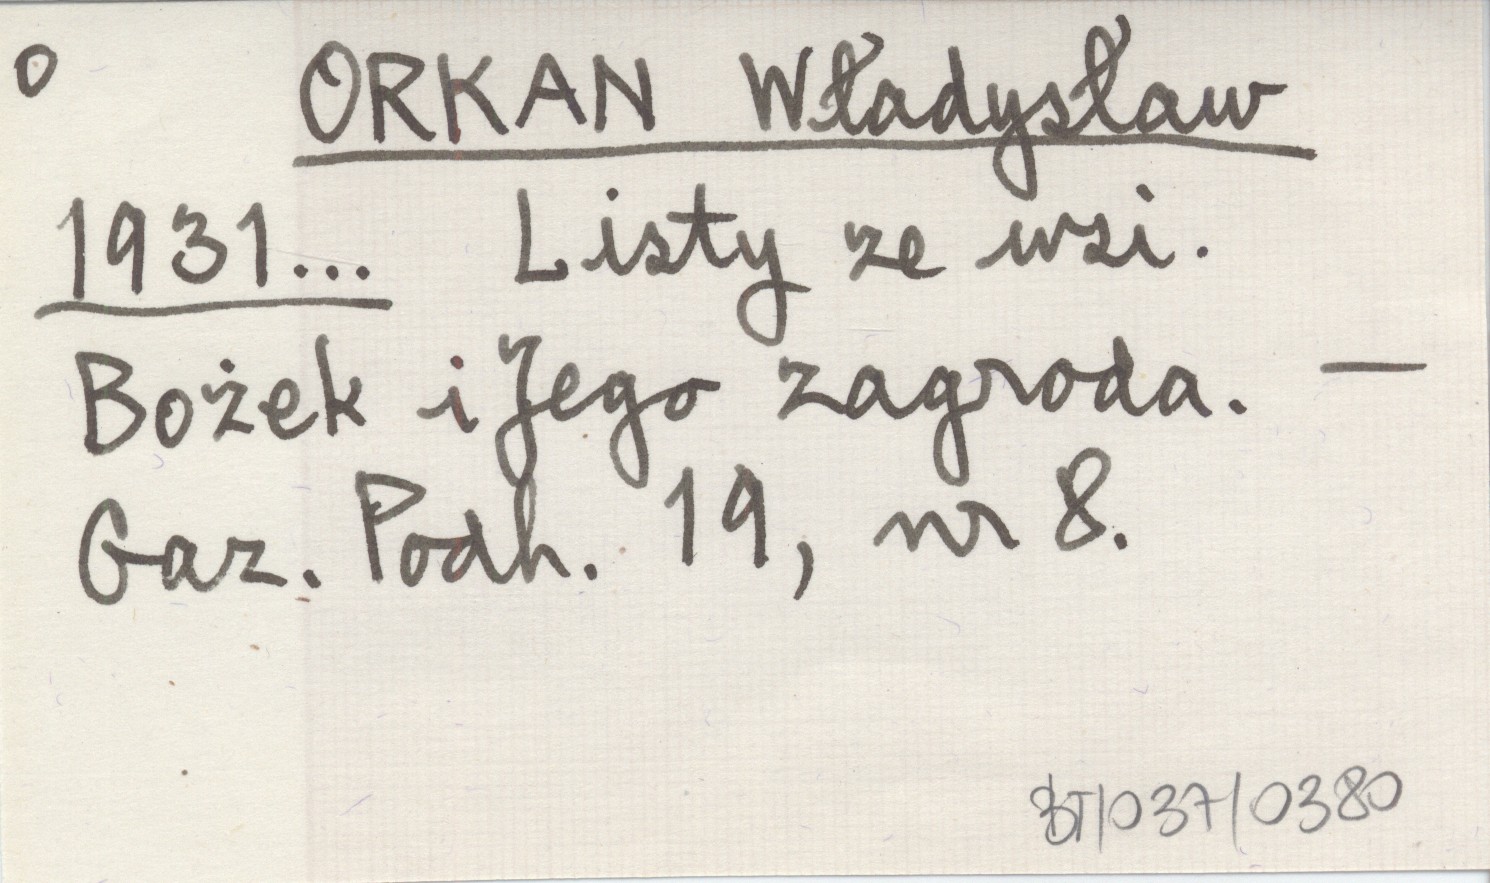 O ORKAN Władysław
1931... Listy ze wsi.
Bożek i Jego zagroda. —
Gaz. Podh. 19, nr 8.
BT/037/0380